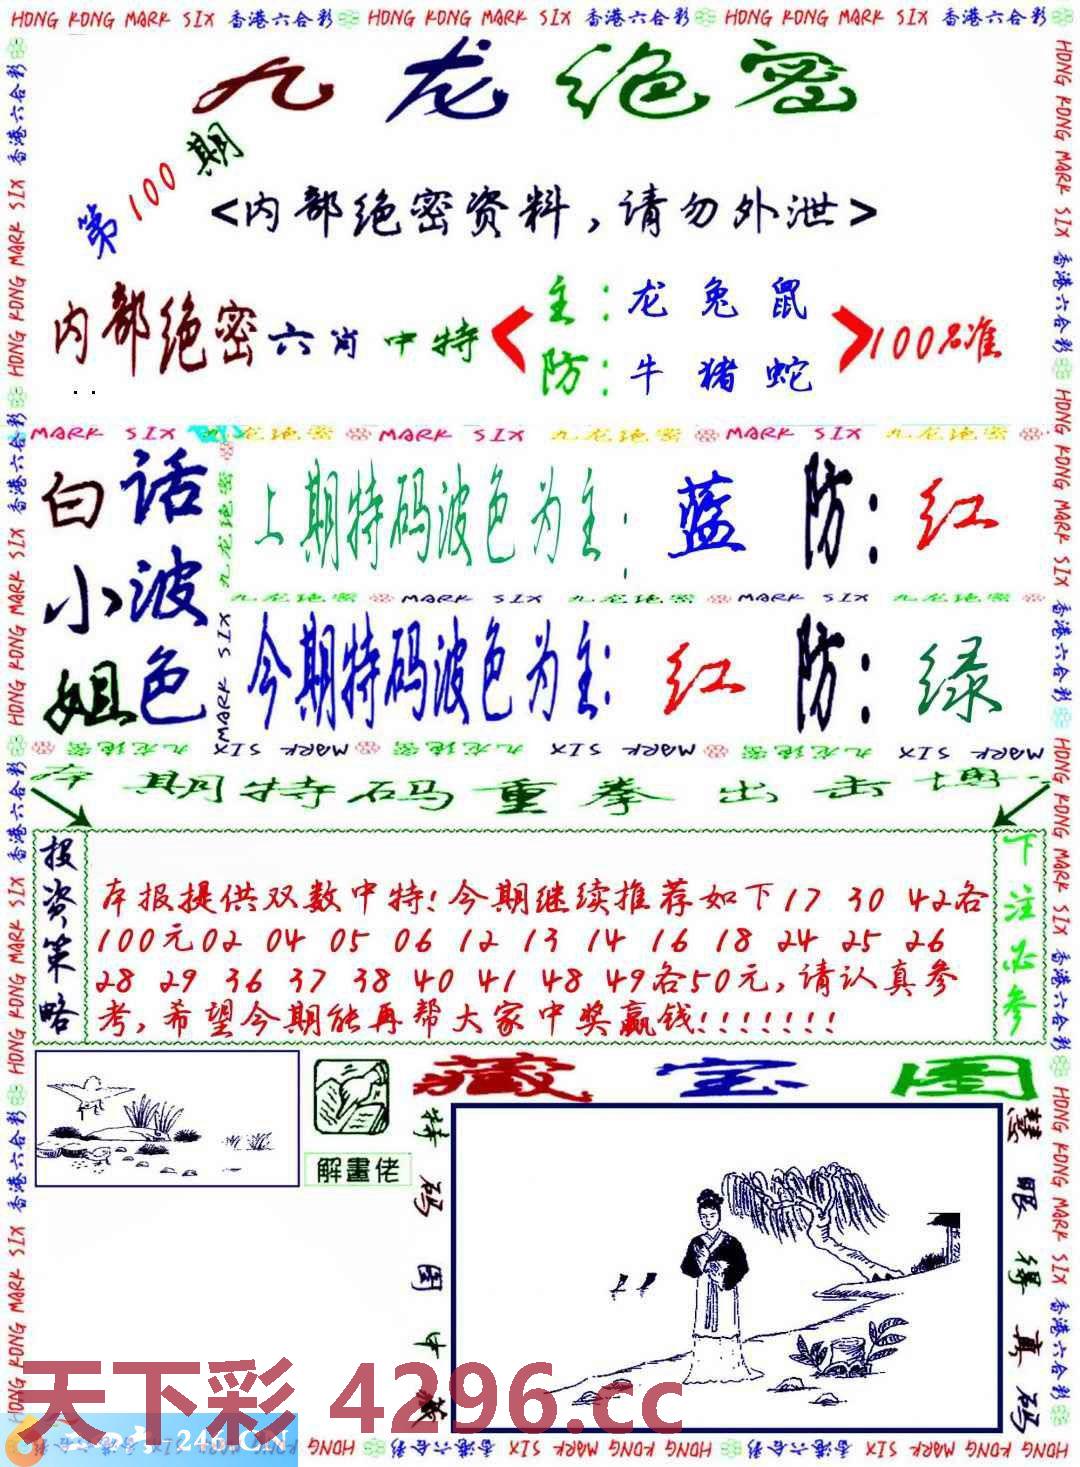 HONG KONG MARK SIX 香港六合彩 HONG KONG MARK SIX 香港六合彩 HONG KONG MARK SIX 香港六合彩
九龙绝密
第100期
<内部绝密资料,请勿外泄>
内部绝密六肖中特
主:龙兔鼠
防:牛猪蛇
100%准
MARK SIX 九龙绝密 MARK SIX 九龙绝密 MARK SIX 九龙绝密
白话小姐波色
上期特码波色为主: 蓝 防: 红
九龙绝密 MARK SIX 九龙绝密 MARK SIX 九龙绝密
今期特码波色为主: 红 防: 绿
九龙绝密 MARK SIX 九龙绝密 MARK SIX MARK SIX 九龙绝密 MARK SIX
本期特码重拳出击
投资策略
本报提供双数中特!今期继续推荐如下17 30 42各
100元02 04 05 06 12 13 14 16 18 24 25 26
28 29 36 37 38 40 41 48 49各50元,请认真参
考,希望今期能再帮大家中奖赢钱!!!!!!!
下注必参
解畫佬
藏宝图
特码图中藏
慧眼得真码
天下彩 4296.cc
246.CN
HONG KONG MARK SIX 香港六合彩